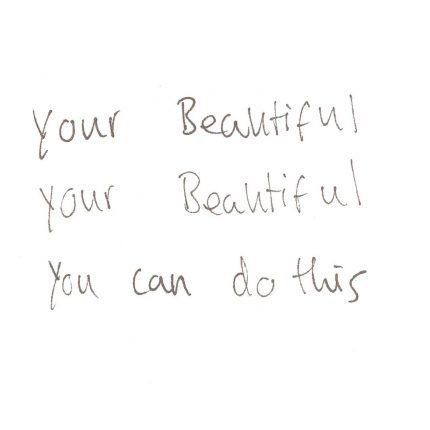 your Beautiful
your Beautiful
you can do this